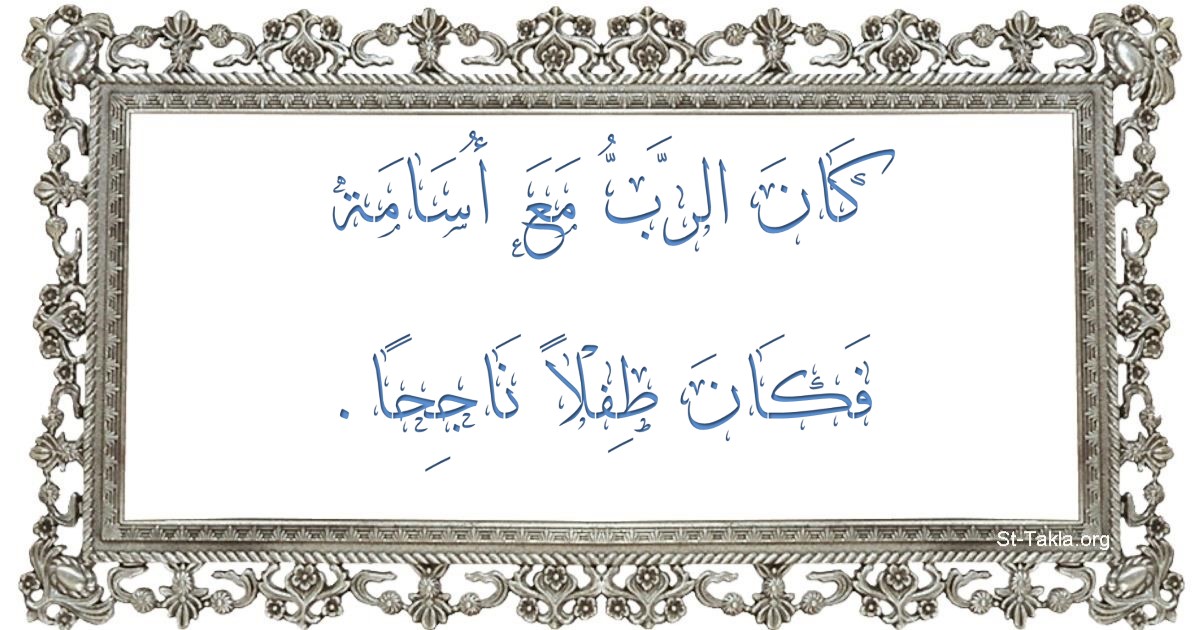 كَانَ الرَّبُّ مَعَ أُسَامَةْ
فَكَانَ طِفْلاً نَاجِحًا .
St-Takla.org